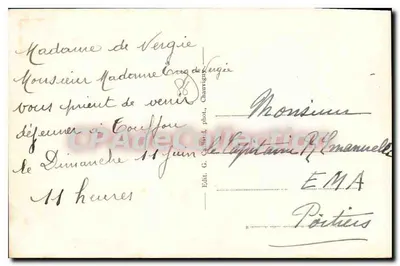 Madame de Vergie
Monsieur Madame de Vergie
vous prient de venir
déjeuner à Touffou
le Dimanche 11 Juin
11 heures
Edit. G. phot., Chauvigny
Monsieur
le Capitaine
EMA
Poitiers